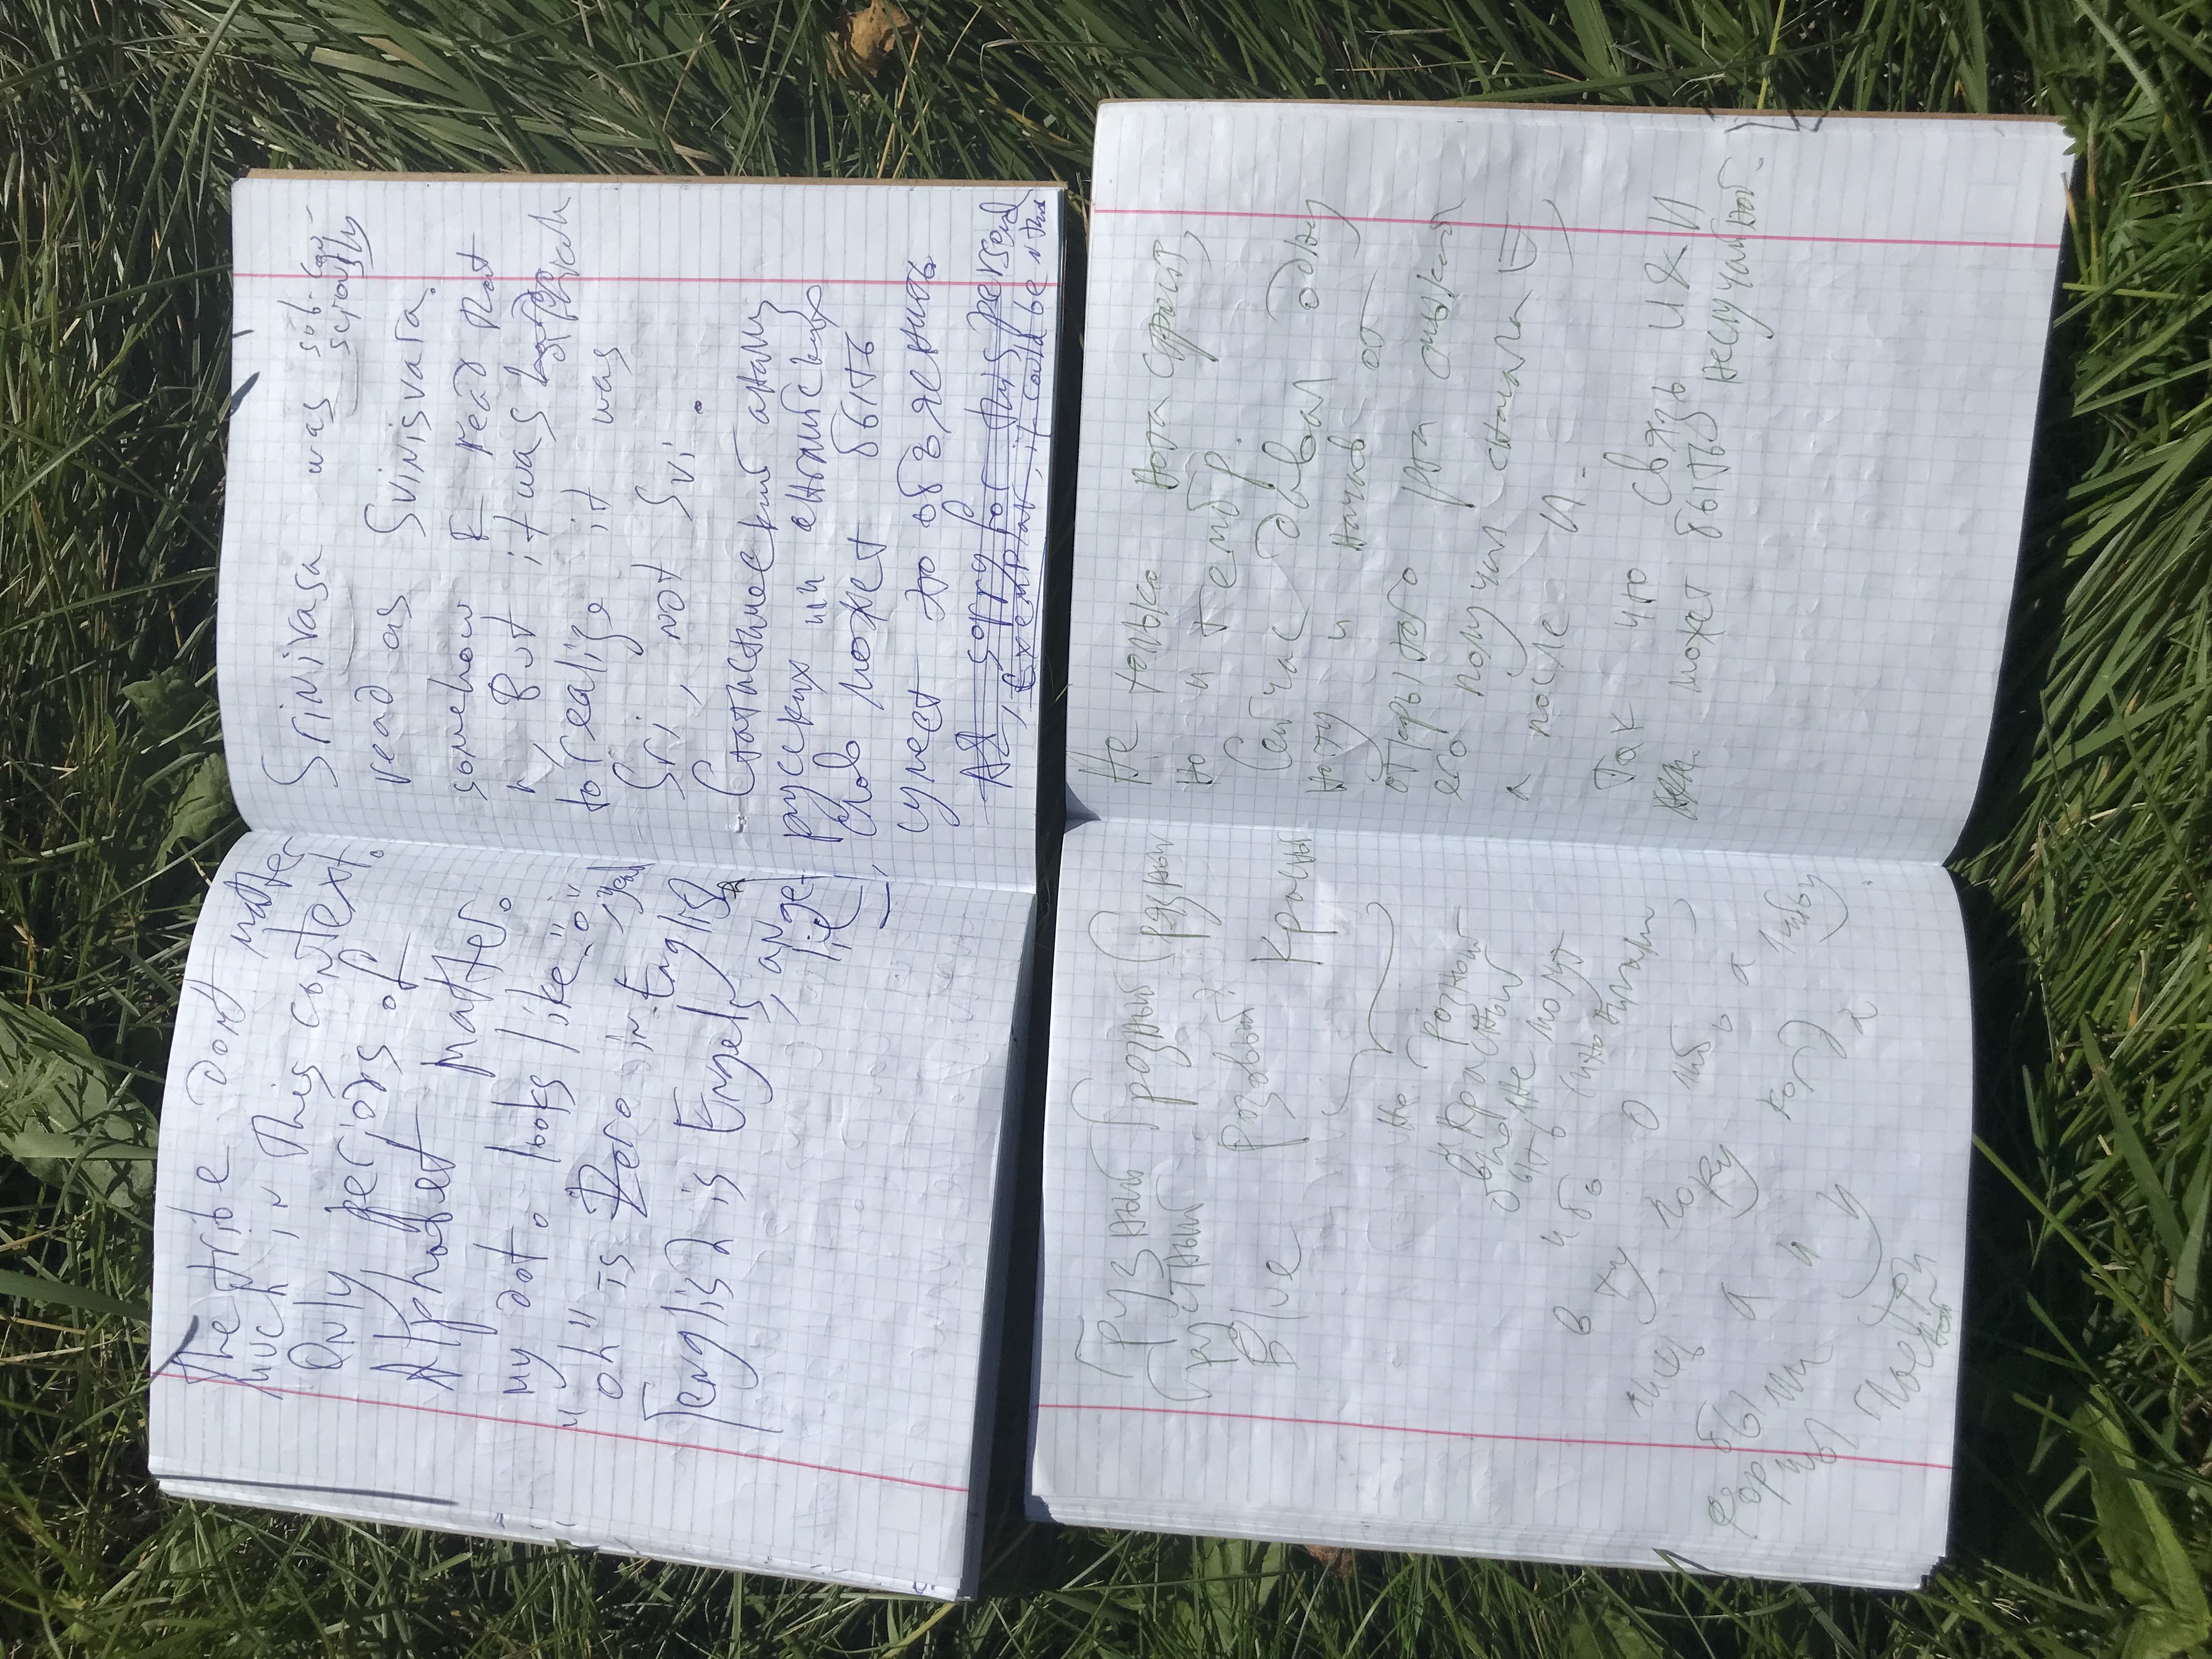 The tribe dont matter
much in this context.
Only periods of
Alphabet matter.
my dot. looks like "o",
"oh" is Zero in English
English is Engels, ange-
lic
Srinivasa was sub-con-
sciously
read as Svinisvara.
somehow I read that
r, But it was
to realize it was
Sri, not Svi.
Статистический анализ
русских или английских
слов может быть
сумест это объяснить
sorry for this personal
Exemplar, it could be
Грузный Грозный Грязный
Грустный
Blue розовый? Красный
но розный
и красный
вполне могут
быть
ибо
О либо а
в ту пору
а и
формы
Не только нота строит,
но и тембр.
Сейчас давал одну
ноту и начав от
открытого рта смыкая
его получил сначала Е
а после И.
Так что связь И & И
может быть неслучайной.